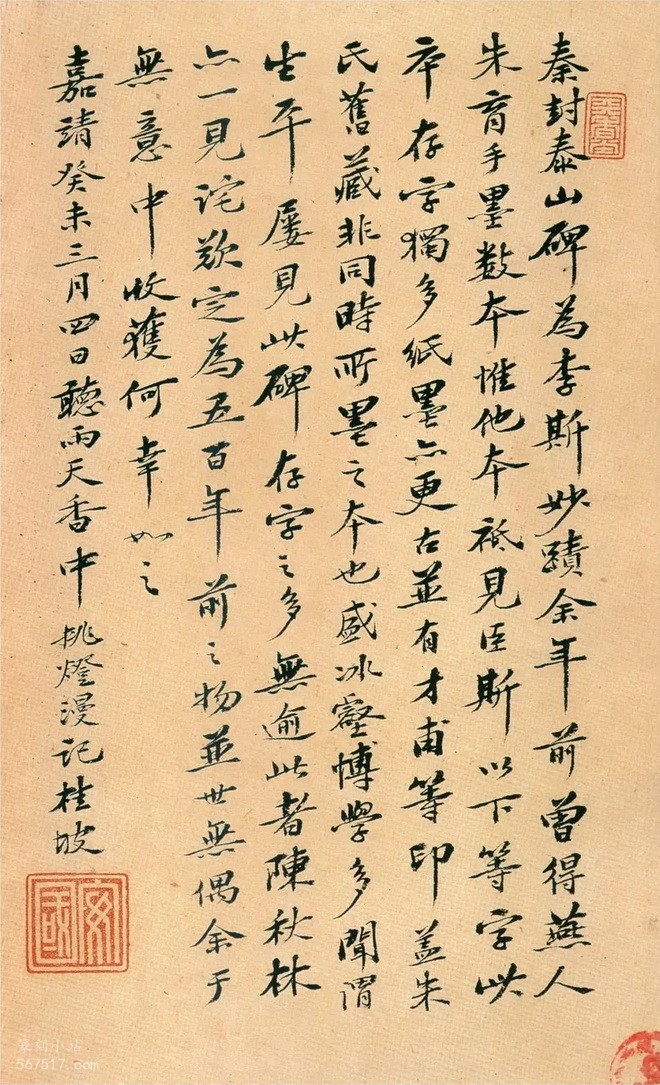 秦封泰山碑為李斯妙蹟余年前曾得燕人
朱育手墨数本惟他本祗見臣斯以下等字此
本存字獨多紙墨亦更古並有才甫等印蓋朱
氏舊藏非同時所墨之本也盛冰壑博學多聞謂
生平屡見此碑存字之多無逾此者陳秋林
亦一見詫歎定為五百年前之物並世無偶余于
無意中收獲何幸如之
嘉靖癸未三月四日聽雨天香中挑燈漫記桂坡
安國
篆刻小站
567517.com